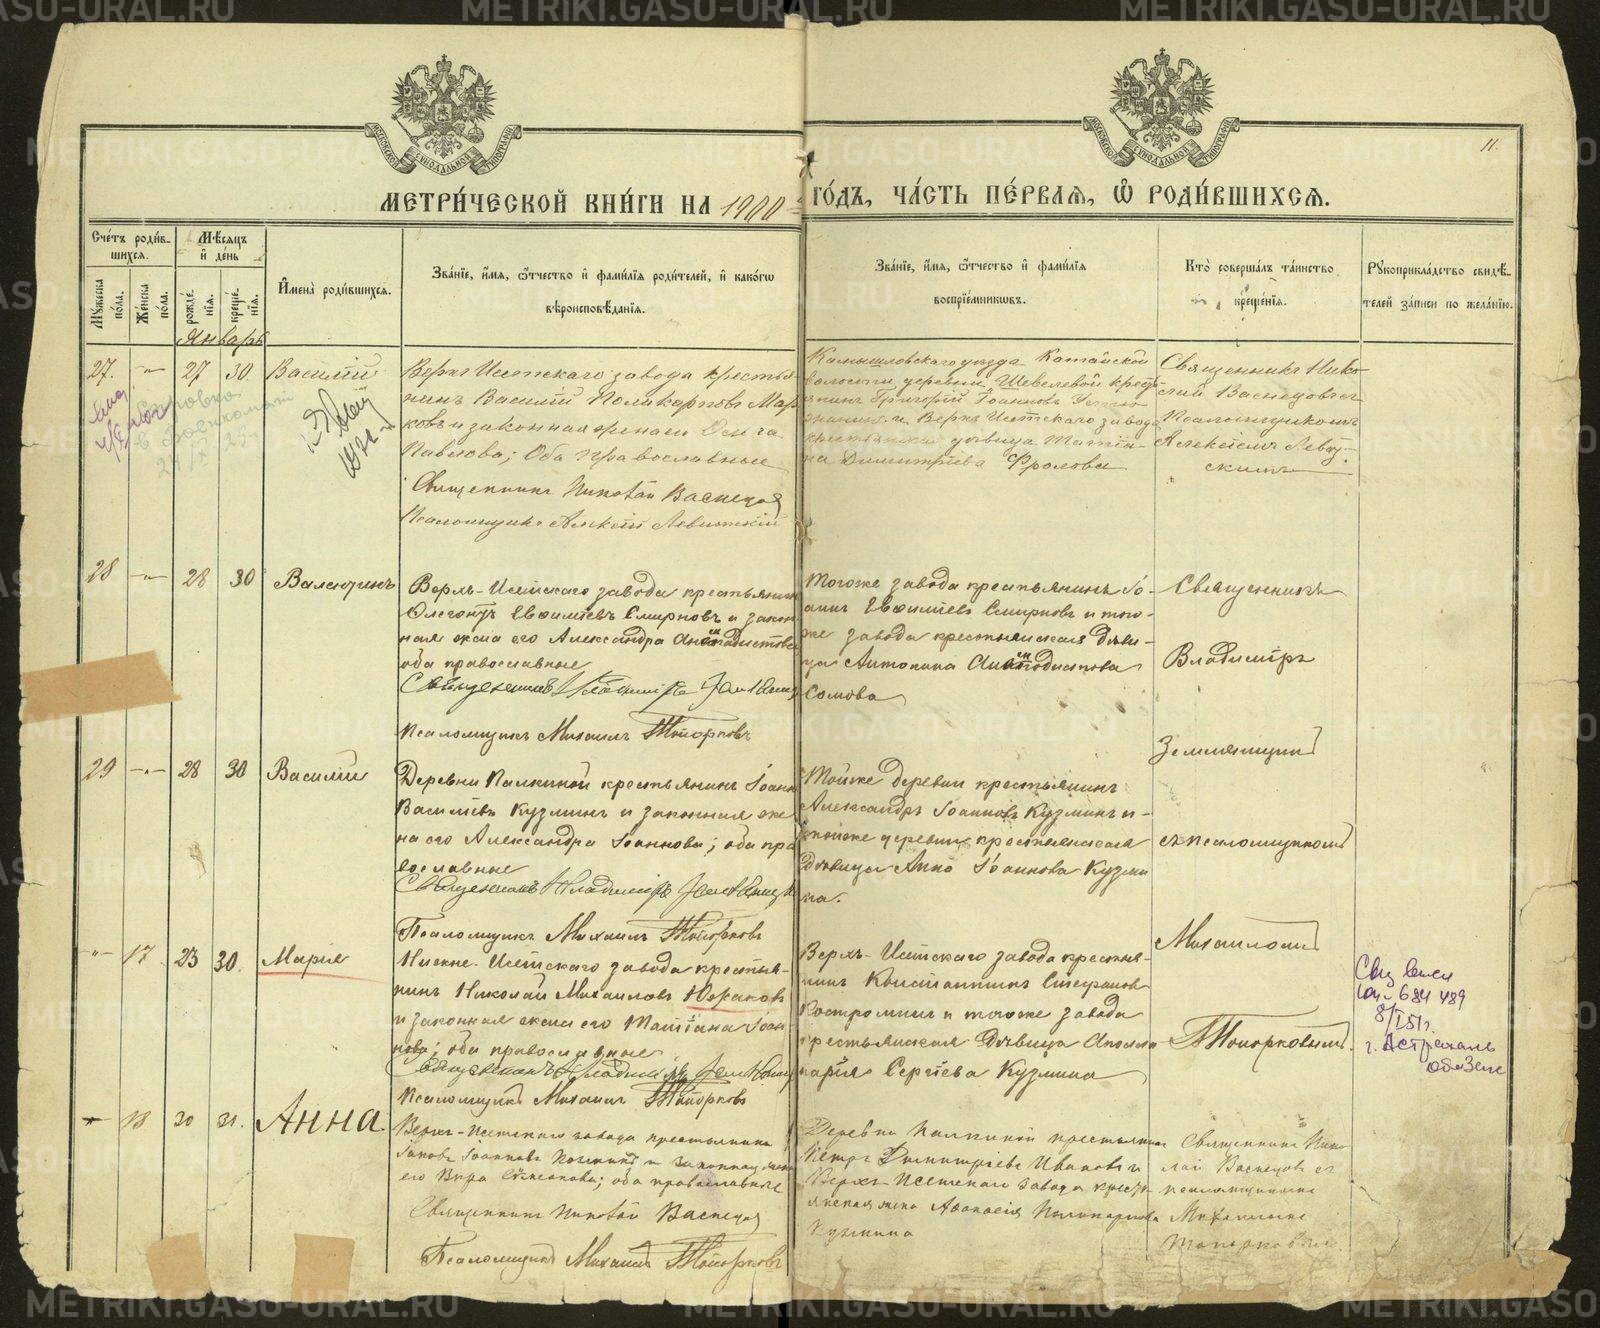 МЕТРИ́ЧЕСКОЙ КНИ́ГИ НА 1900 ГО́ДЪ, ЧА́СТЬ ПЕ́РВАЯ, Ѡ РОДИ́ВШИХСЯ.
11.
Сче́тъ роди́вшихся.
Му́жеска по́ла.
Же́нска по́ла.
Мѣ́сяцъ и де́нь
рожде́нїя.
креще́нїя.
Имена̀ роди́вшихся.
Зва́нїе, и́мя, ѻ҆́тчество и фами́лїя роди́телей, и како́гѡ
вѣроисповѣ́данїя.
Зва́нїе, и́мя, ѻ҆́тчество и фами́лїя
воспрїе́мниковъ.
Кто̀ соверша́лъ та́инство
креще́нїя.
Рукоприкла́дство свидѣ́-
телей за́писи по жела́нїю.
Январь
27. -"- 27 30. Василій
Верхъ Исетскаго завода крестья-
нинъ Василій Поликарповъ Мар
ковъ и законная жена его Ольга
Павлова; Оба православные
Священникъ Николай Васнецов
Псаломщикъ Алексій Левитскій
Камышловскаго уѣзда Катайской
волости деревни Шевелевой крест
янинъ Григорій Іоанновъ
и Верхъ Исетскаго завода
крестьянская дѣвица Татіа-
на Димитріева Фролова
Священникъ Нико-
лай Васнецовъ съ
Псаломщикомъ
Алексіемъ Левит-
скимъ
28 -"- 28 30 Валентинъ
Верхъ-Исетскаго завода крестьянинъ
Евфиміевъ Смирновъ и закон
ная жена его Александра
оба православные
Священникъ Владиміръ Земляниц
Псаломщикъ Михаилъ Топорковъ
Тогоже завода крестьянинъ Іо-
аннъ Евфиміевъ Смирновъ и того-
же завода крестьянская дѣви-
ца Антонина
Сомова
Священникъ
Владиміръ
Земляницынъ
29 -"- 28 30 Василій
Деревни Палкиной крестьянинъ Іоаннъ
Василіевъ Кузминъ и законная же
на его Александра Іоаннова; оба пра
вославные
Священникъ Владиміръ Земляниц
Псаломщикъ Михаилъ Топорковъ
Тойже деревни крестьянинъ
Александръ Іоанновъ Кузминъ и
тойже деревни крестьянская
дѣвица Анна Іоаннова Кузми
на.
съ псаломщикомъ
Михаиломъ
Топорковымъ.
-"- 17. 23 30. Марія
Нижне-Исетскаго завода крестья-
нинъ Николай Михаиловъ
и законная жена его Татіана Іоан-
нова; оба православные
Священникъ Владиміръ Земляниц
Псаломщикъ Михаилъ Топорковъ
Верхъ-Исетскаго завода крестья-
нинъ Константинъ Стефановъ
Костроминъ и тогоже завода
крестьянская дѣвица Аполли
нарія Сергіева Кузмина
684 489
8/I 51г.
г. Астрахань
18 30 31. Анна.
Верхъ-Исетскаго завода крестьянинъ
Іаковъ Іоанновъ и законная жена
его Вѣра Симеонова; оба православные
Священникъ Николай Васнецов
Псаломщикъ Михаилъ Топорковъ
Деревни Палкиной крестьянинъ
Петръ Димитріевъ Ивановъ и
Верхъ-Исетскаго завода крест
янская жена Афанасія Поликарпова
Кузмина
Священникъ Нико
лай Васнецовъ съ
псаломщикомъ
Михаиломъ
Топорковымъ
METRIKI.GASO-URAL.RU